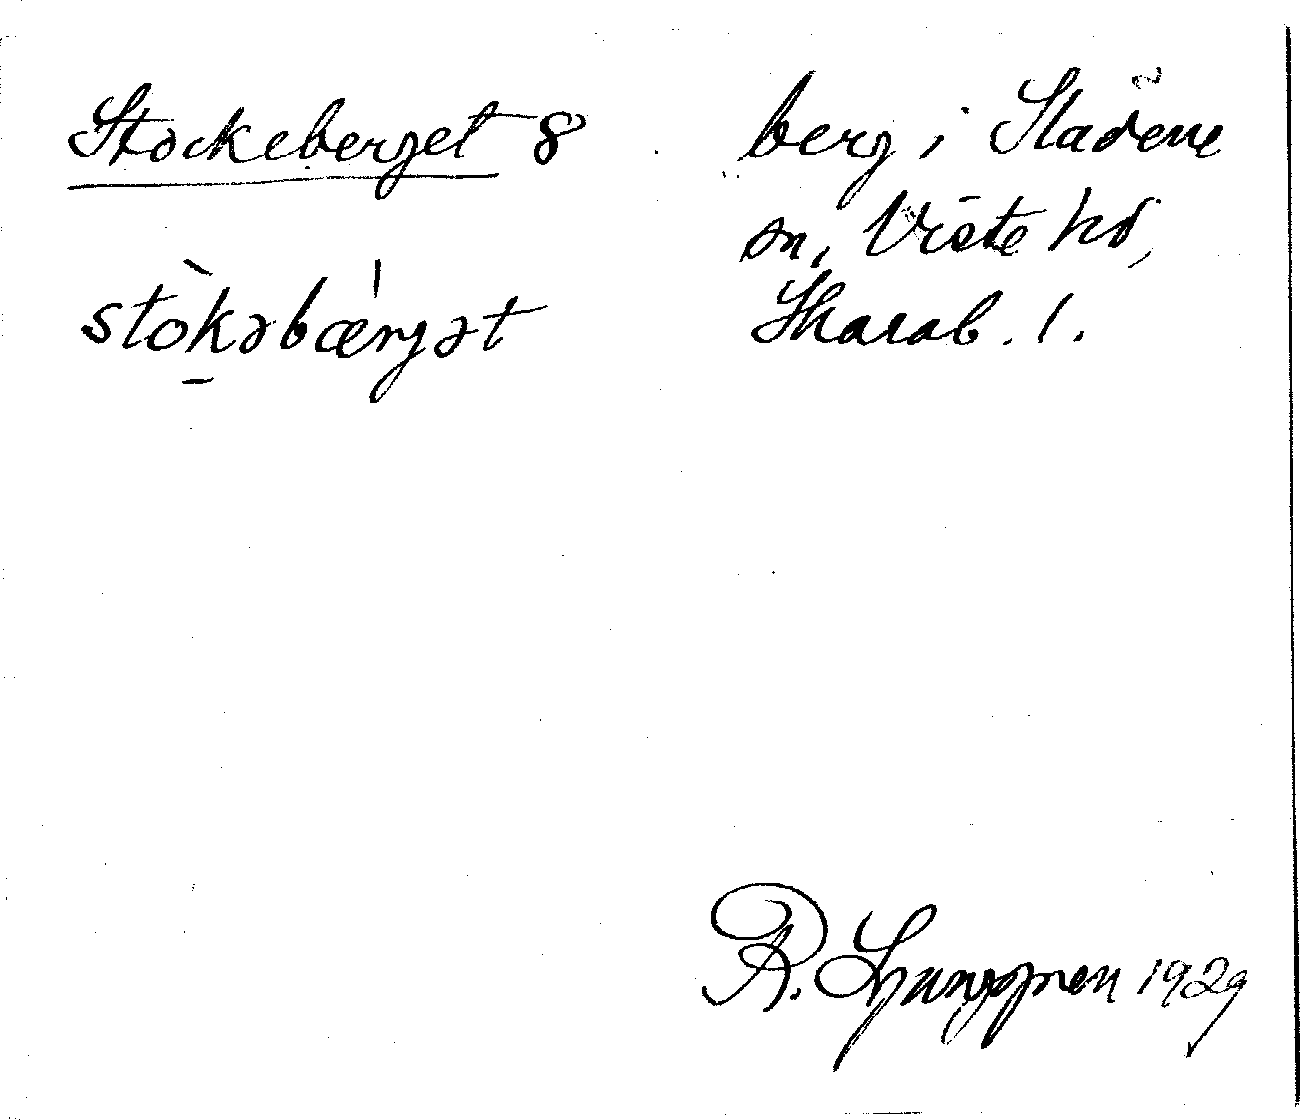 Stockeberget 8
stòkəbærgət
berg i Slädene
sn, Viste hd,
Skarab. l.
R. Ljunggren 1929